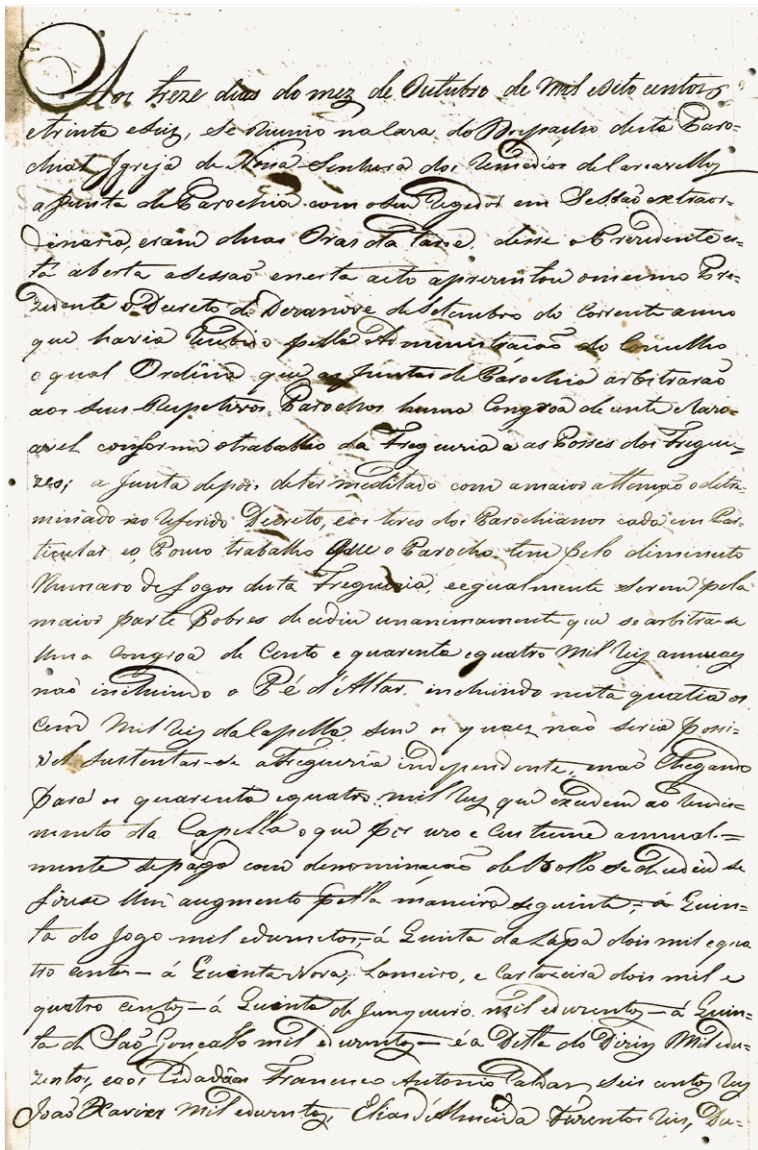 Aos treze dias do mez de Outubro de Mil eoito centos,
etrinta eSeiz, se riunio na Caza do Despacho desta Paro-
chial Igreja de Nossa Senhora dos Remedios deCarcavellos
aJunta deParochia com oseu Regedor em Sessão extraor-
dinaria, eram duas Oras da tarde, disse oPrezidente es-
tá aberta aSessaõ enesta acto aprezentou omesmo Pre-
zidente o Decreto de Dezanove deSetembro do Corrente anno
que havia recibido pella Administraçaõ do Concelho
o qual Ordena que as Juntas de Parochia arbitraraõ
aos seus Respetivos Parochos huma Congroa decente eLaro-
avel conforme otrabalho da Freguezia e as Posses dos Fregue-
zes; a Junta depois deter meditado com amaior attençaõ odeter-
minado no referido Decreto, eos teres dos Parochianos cada em Par-
ticular eo, Pouco trabalho que o Parocho tem pelo diminuto
Numaro de fogos desta Freguezia, eegualmente serem pela
maior parte Pobres decidiu unanimamente que se arbitra-se
Uma Congroa de Cento e quarenta equatro Mil reiz annuaes
naõ incluindo o Pé d'Altar, incluindo nesta quatia os
Cem Mil reiz daCapella, sem os quaes naõ seria possi-
vel sustentar-se aFreguezia independente, enaõ Chegando
para os quarenta equatro mil reiz que excedem ao rendi-
mento da Capella o que por uzo e Custume annual-
mente sepaga com denominaçaõ deBollo sedecidiu se
fizese Um augmento pella maneira seguinte; - á Quin-
ta do Jogo mil eduzentos, - á Quinta daLapa dois mil equa
tro centos - á Quinta Nova, Lameiro, e Cartaxeira dois mil e
quatro centos - á Quinta do Junqueiro mil eduzentos - á Quin-
ta de Saõ Goncallo mil eduzentos - e á Ditta do Diriz Mil edu-
zentos, eaos Cidadãos Francisco Antonio Caldas, seis centos reis
Joaõ Xavier mil eduzentos, Elias d'Almeida Durentos reis, Du-